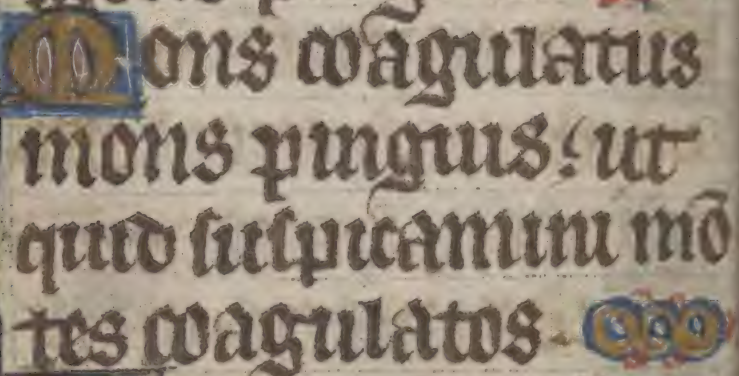 Mons coagulatus
mons pinguis: ut
quid suspicamini mō
tes coagulatos.